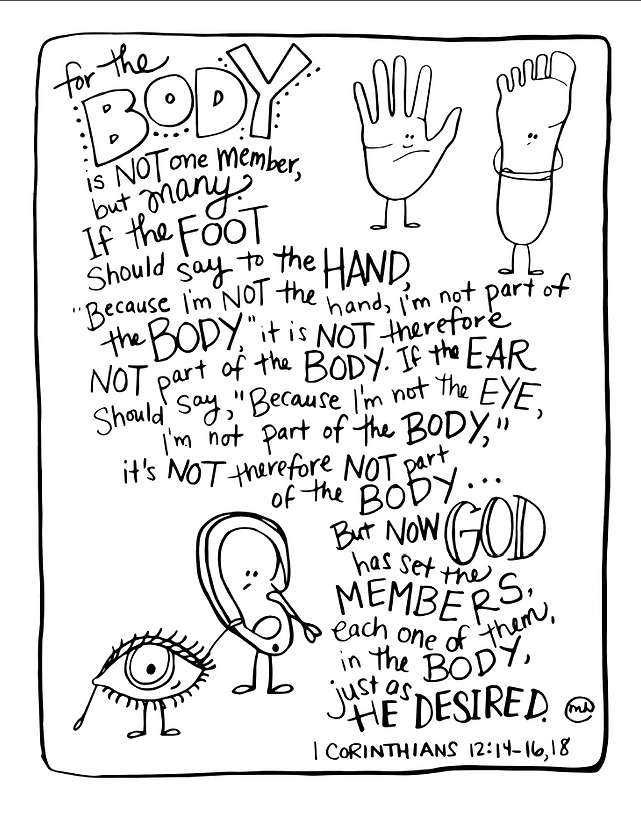 for the
BODY
is NOT one member,
but many.
If the FOOT
Should say to the HAND,
"Because I'm NOT the hand, I'm not part of
the BODY," it is NOT therefore
NOT part of the BODY. If the EAR
Should say, "Because I'm not the EYE,
I'm not part of the BODY,"
it's NOT therefore NOT part
of the BODY...
But NOW GOD
has set the
MEMBERS,
each one of them,
in the BODY,
just as
HE DESIRED.
1 CORINTHIANS 12:14-16,18